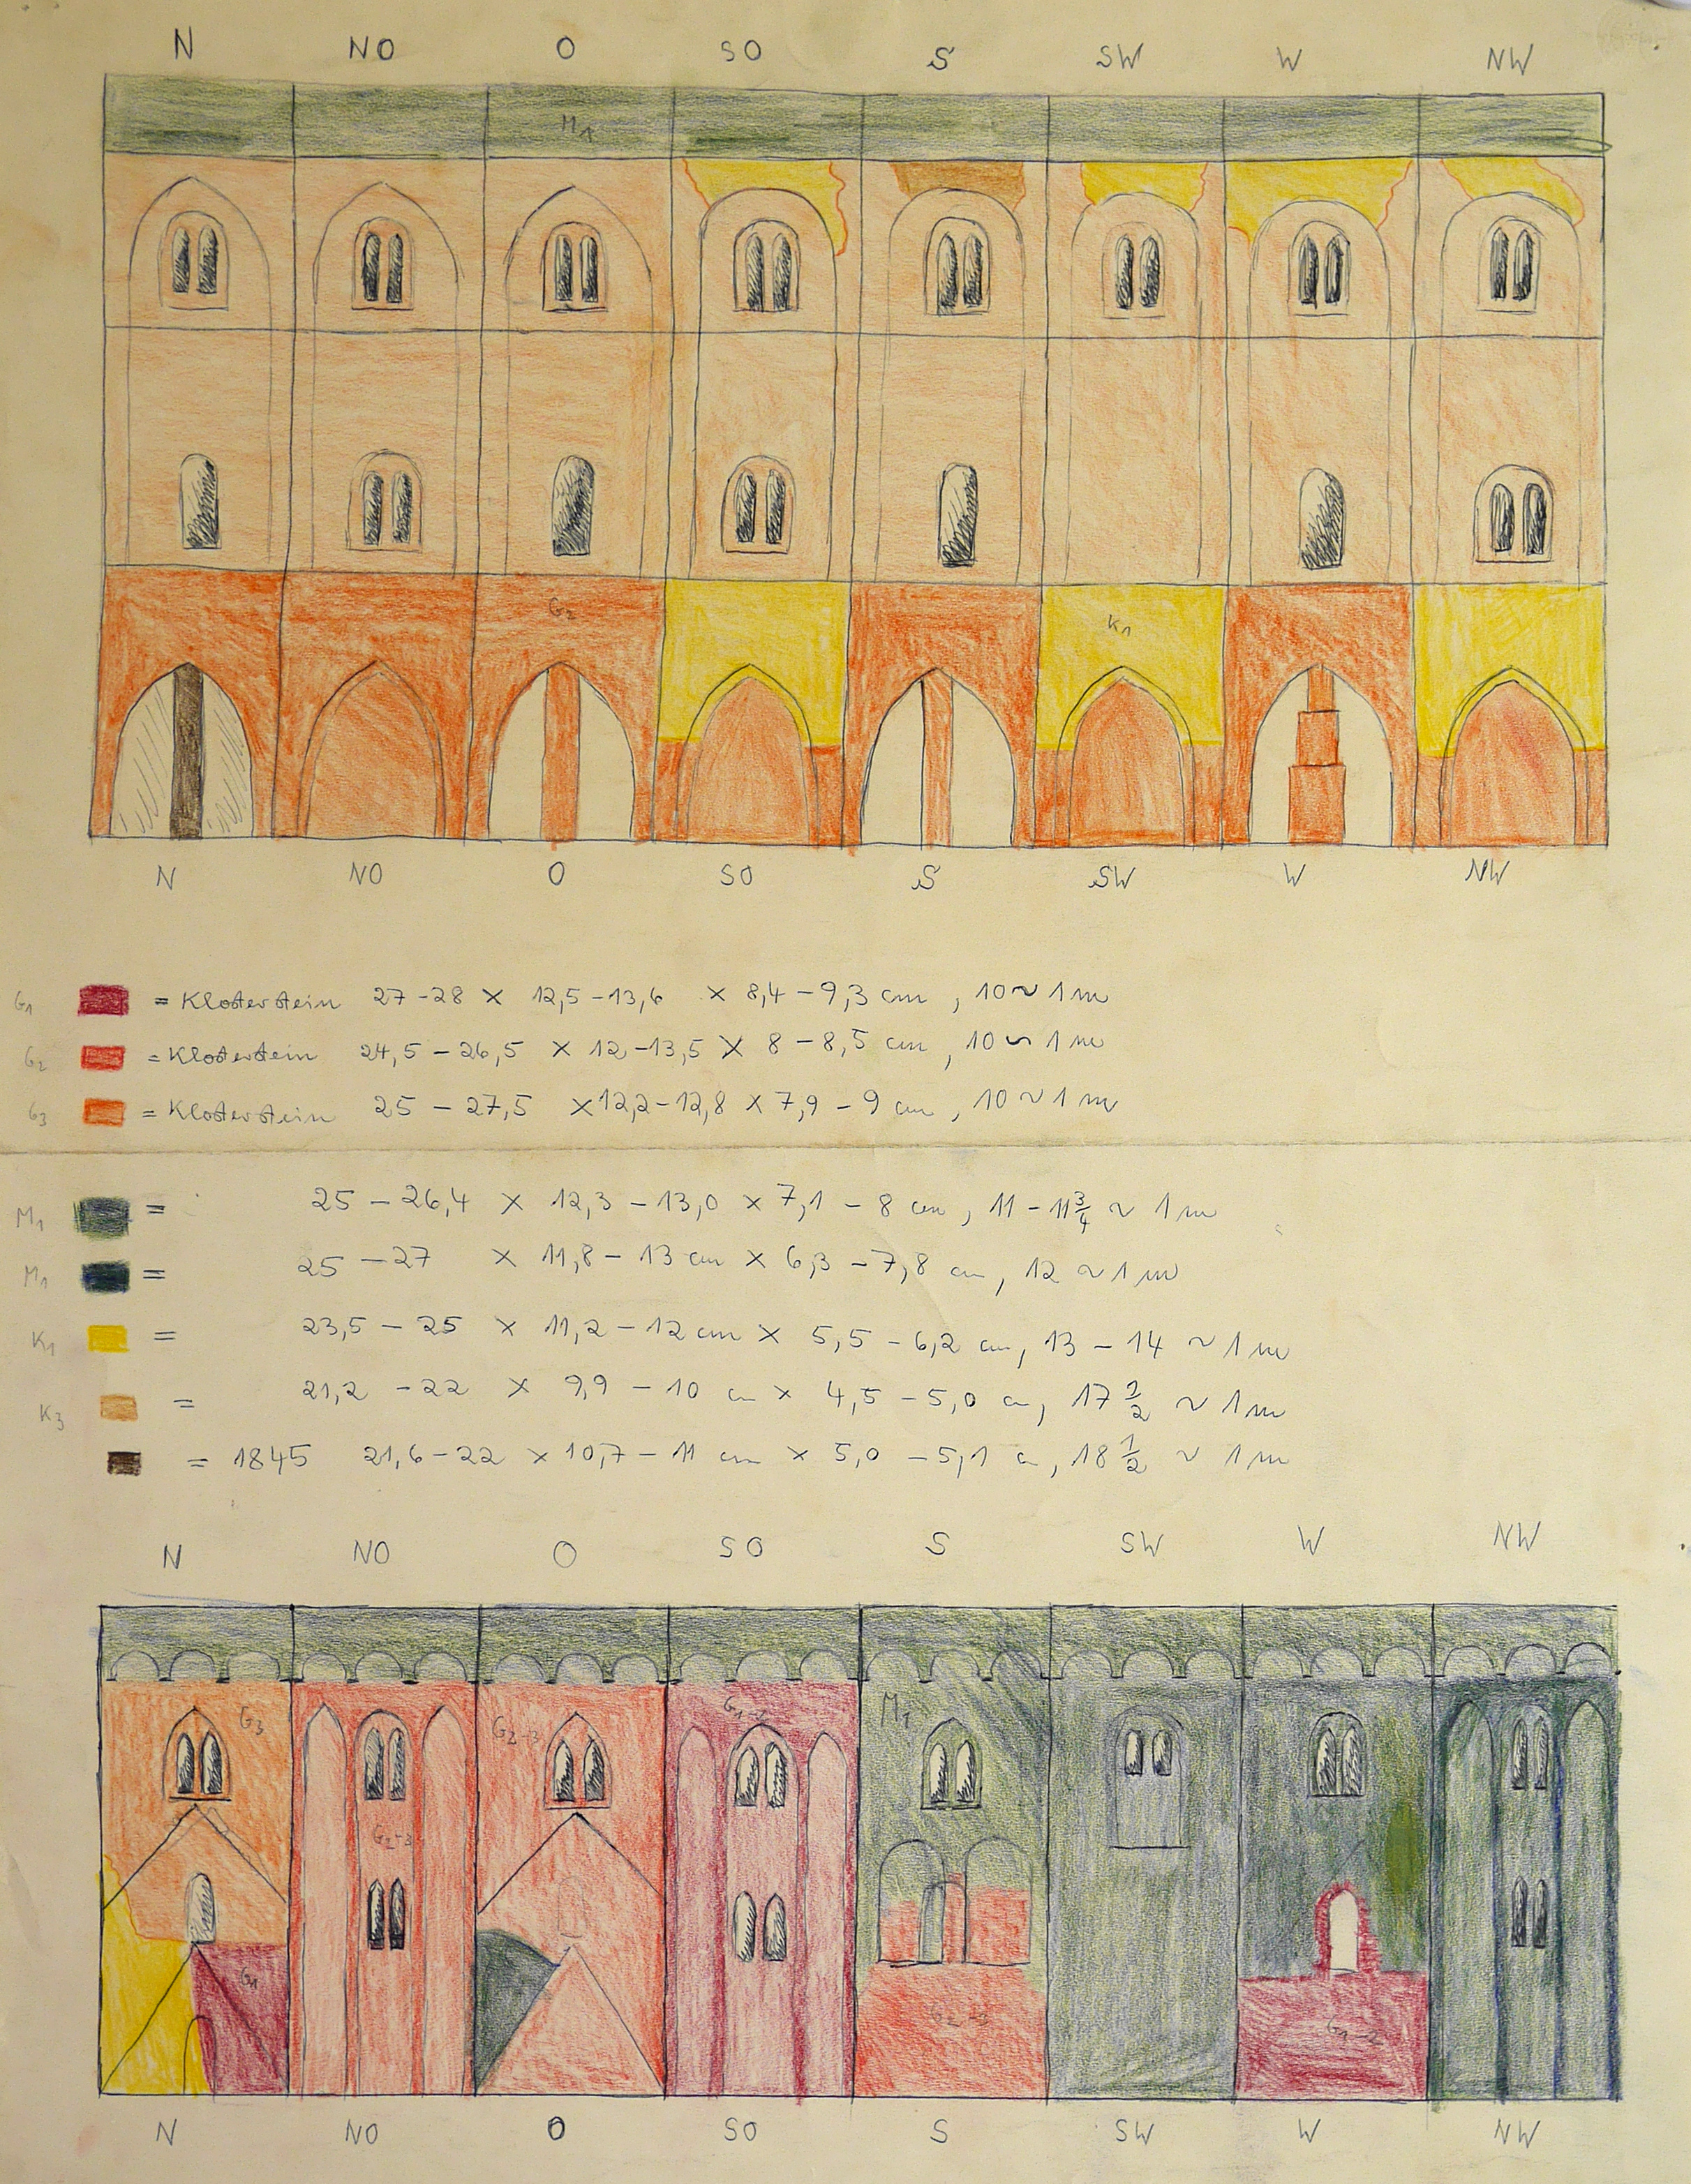 N NO O SO S SW W NW
M1
G2
K1
N NO O SO S SW W NW
G1 = Klosterstein 27-28 × 12,5-13,6 × 8,4-9,3 cm, 10 ~ 1 m
G2 = Klosterstein 24,5-26,5 × 12-13,5 × 8-8,5 cm, 10 ~ 1 m
G3 = Klosterstein 25-27,5 × 12,2-12,8 × 7,9-9 cm, 10 ~ 1 m
M1 = 25-26,4 × 12,3-13,0 × 7,1-8 cm, 11-11 3/4 ~ 1 m
M1 = 25-27 × 11,8-13 cm × 6,3-7,8 cm, 12 ~ 1 m
K1 = 23,5-25 × 11,2-12 cm × 5,5-6,2 cm, 13-14 ~ 1 m
K3 = 21,2-22 × 9,9-10 cm × 4,5-5,0 cm, 17 1/2 ~ 1 m
= 1845 21,6-22 × 10,7-11 cm × 5,0-5,1 cm, 18 1/2 ~ 1 m
N NO O SO S SW W NW
G3 G2-3 G1-2 M1
G2-3
G1 G2-3 G1-2
N NO O SO S SW W NW